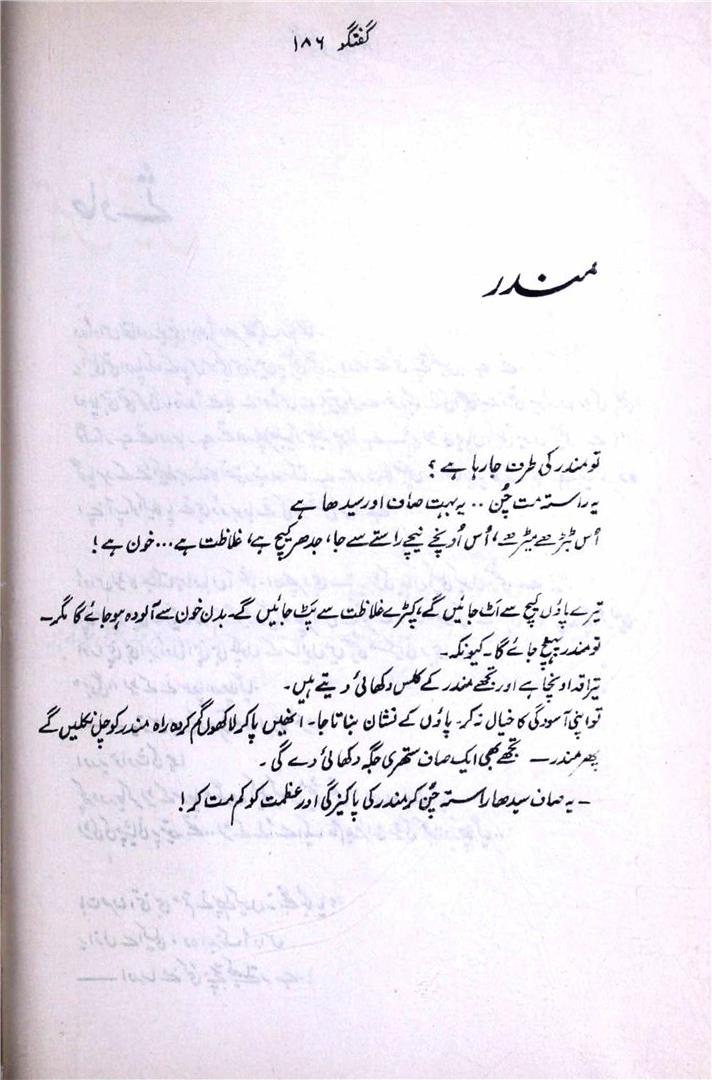 گفتگو ۱۸۶
مندر
تو مندر کی طرف جا رہا ہے؟
یہ راستہ مت چُن .. یہ بہت صاف اور سیدھا ہے
اُس ٹیڑھے میڑھے، اُس اُونچے نیچے راستے سے جا، جدھر کیچ ہے، غلاظت ہے... خون ہے!
تیرے پاؤں کیچ سے اَٹ جائیں گے، کپڑے غلاظت سے پَٹ جائیں گے۔ بدن خون سے آلودہ ہو جائے گا مگر۔
تو مندر پہنچ جائے گا۔ کیونکہ۔
تیرا قد اونچا ہے اور تجھے مندر کے کلس دکھائی دیتے ہیں۔
تو اپنی آسودگی کا خیال نہ کر۔ پاؤں کے نشان بناتا جا۔ انھیں پا کر لاکھوں گم کردہ راہ مندر کو چل نکلیں گے
پھر مندر — تجھے بھی ایک صاف ستھری جگہ دکھائی دے گی۔
— یہ صاف سیدھا راستہ چُن کر مندر کی پاکیزگی اور عظمت کو کم مت کر!